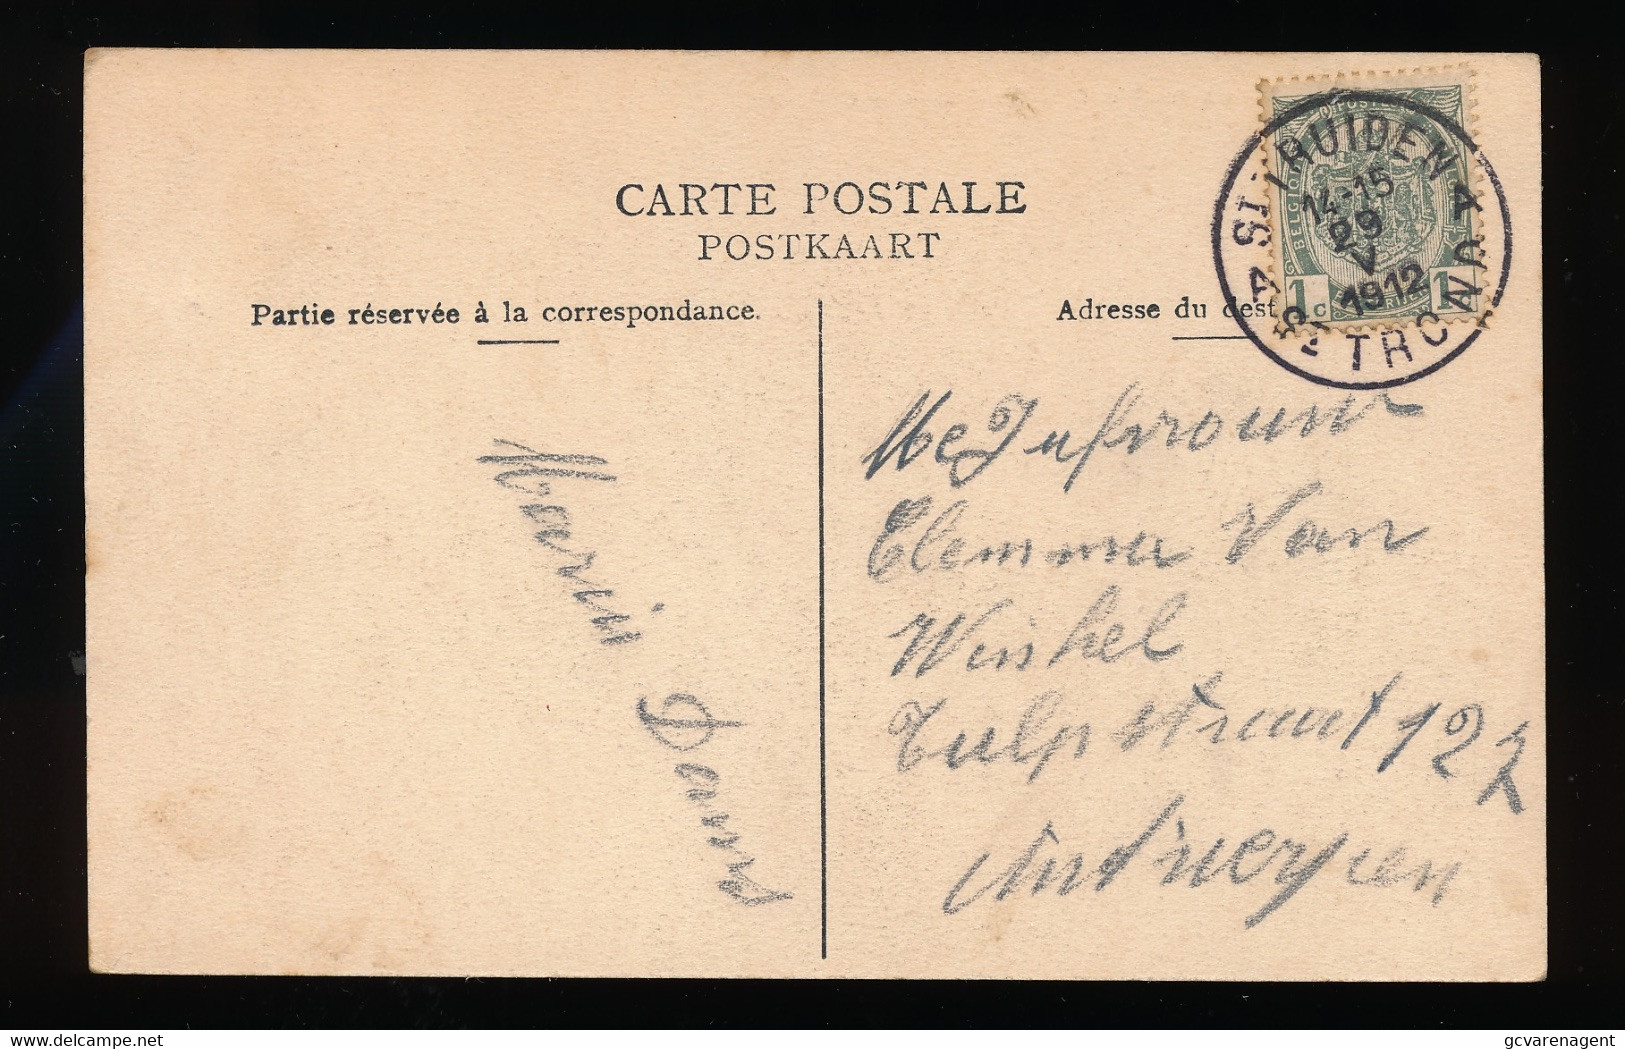 CARTE POSTALE
POSTKAART
Partie réservée à la correspondance.
Adresse du dest
BELGIQUE
1 c 1
ST TRUIDEN
14-15
29
V
1912
ST TROND
Me Jufvrouw
Clemma Van
Winkel
Tulpstraat 122
Antwerpen
delcampe.net
gcvarenagent